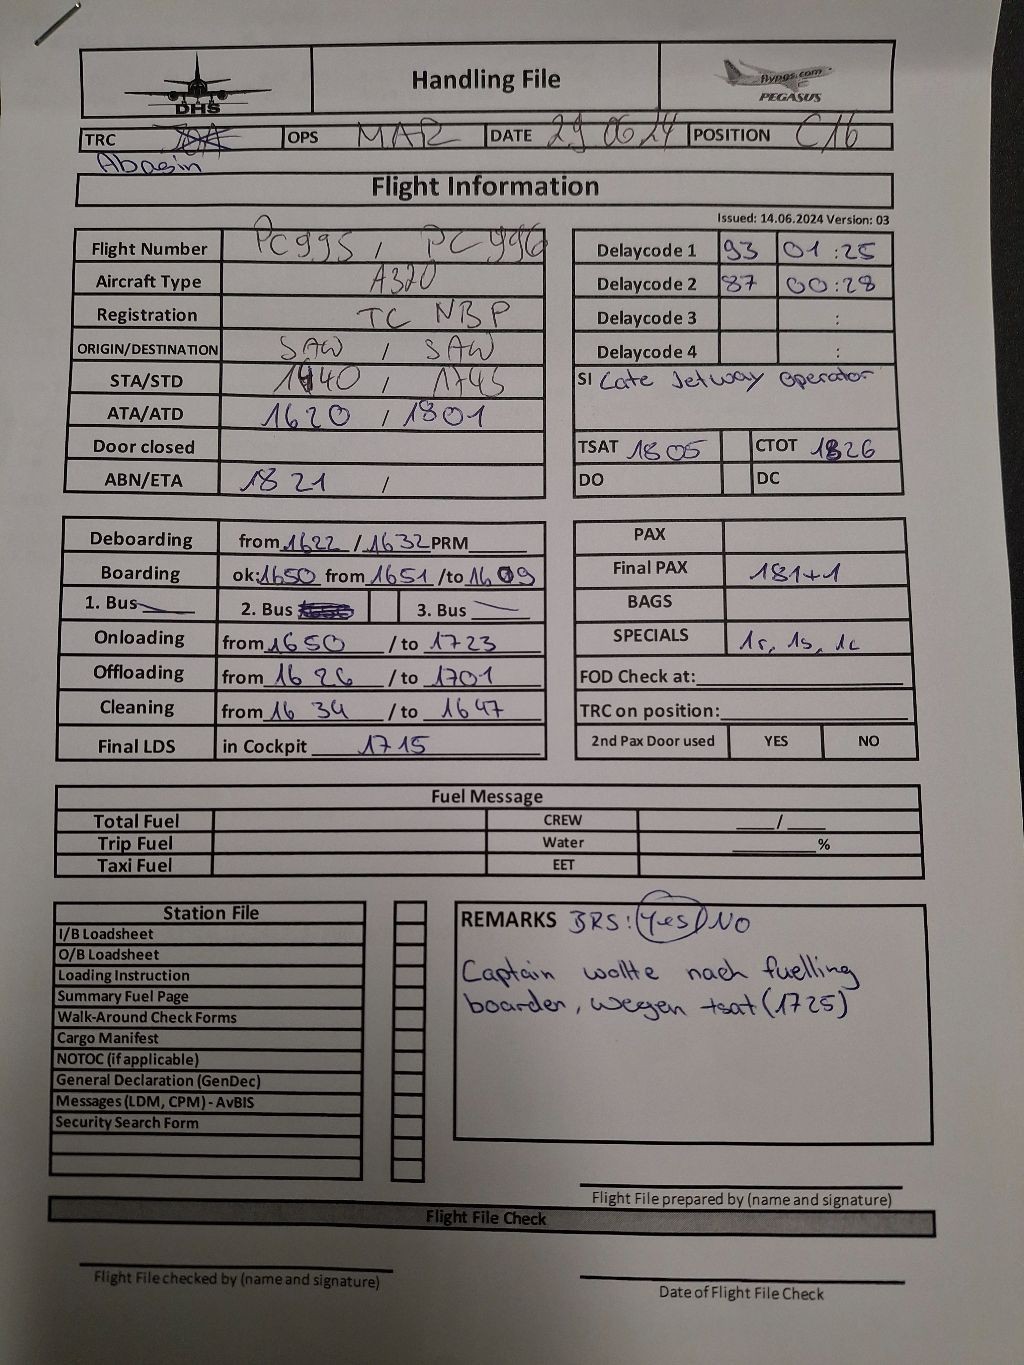 DHS
Handling File
flypgs.com
PEGASUS
TRC OPS MAR DATE 29 06 24 POSITION C16
Abasin
Flight Information
Issued: 14.06.2024 Version: 03
Flight Number PC995 / PC996
Aircraft Type A320
Registration TC NBP
ORIGIN/DESTINATION SAW / SAW
STA/STD 1440 / 1745
ATA/ATD 1620 / 1801
Door closed
ABN/ETA 1821 /
Delaycode 1 93 01:25
Delaycode 2 87 00:28
Delaycode 3 :
Delaycode 4 :
SI Late Jetway Operator
TSAT 1805 CTOT 1826
DO DC
Deboarding from 1622 / 1632 PRM
Boarding ok: 1650 from 1651 /to 1609
1. Bus 2. Bus 3. Bus
Onloading from 1650 / to 1723
Offloading from 1626 / to 1701
Cleaning from 1634 / to 1647
Final LDS in Cockpit 1715
PAX
Final PAX 181+1
BAGS
SPECIALS 1r, 1s, 1c
FOD Check at:
TRC on position:
2nd Pax Door used YES NO
Fuel Message
Total Fuel CREW /
Trip Fuel Water %
Taxi Fuel EET
Station File
I/B Loadsheet
O/B Loadsheet
Loading Instruction
Summary Fuel Page
Walk-Around Check Forms
Cargo Manifest
NOTOC (if applicable)
General Declaration (GenDec)
Messages (LDM, CPM) - AvBIS
Security Search Form
REMARKS BRS: Yes/NO
Captain wollte nach fuelling
boarden, wegen tsat (1725)
Flight File prepared by (name and signature)
Flight File Check
Flight File checked by (name and signature)
Date of Flight File Check